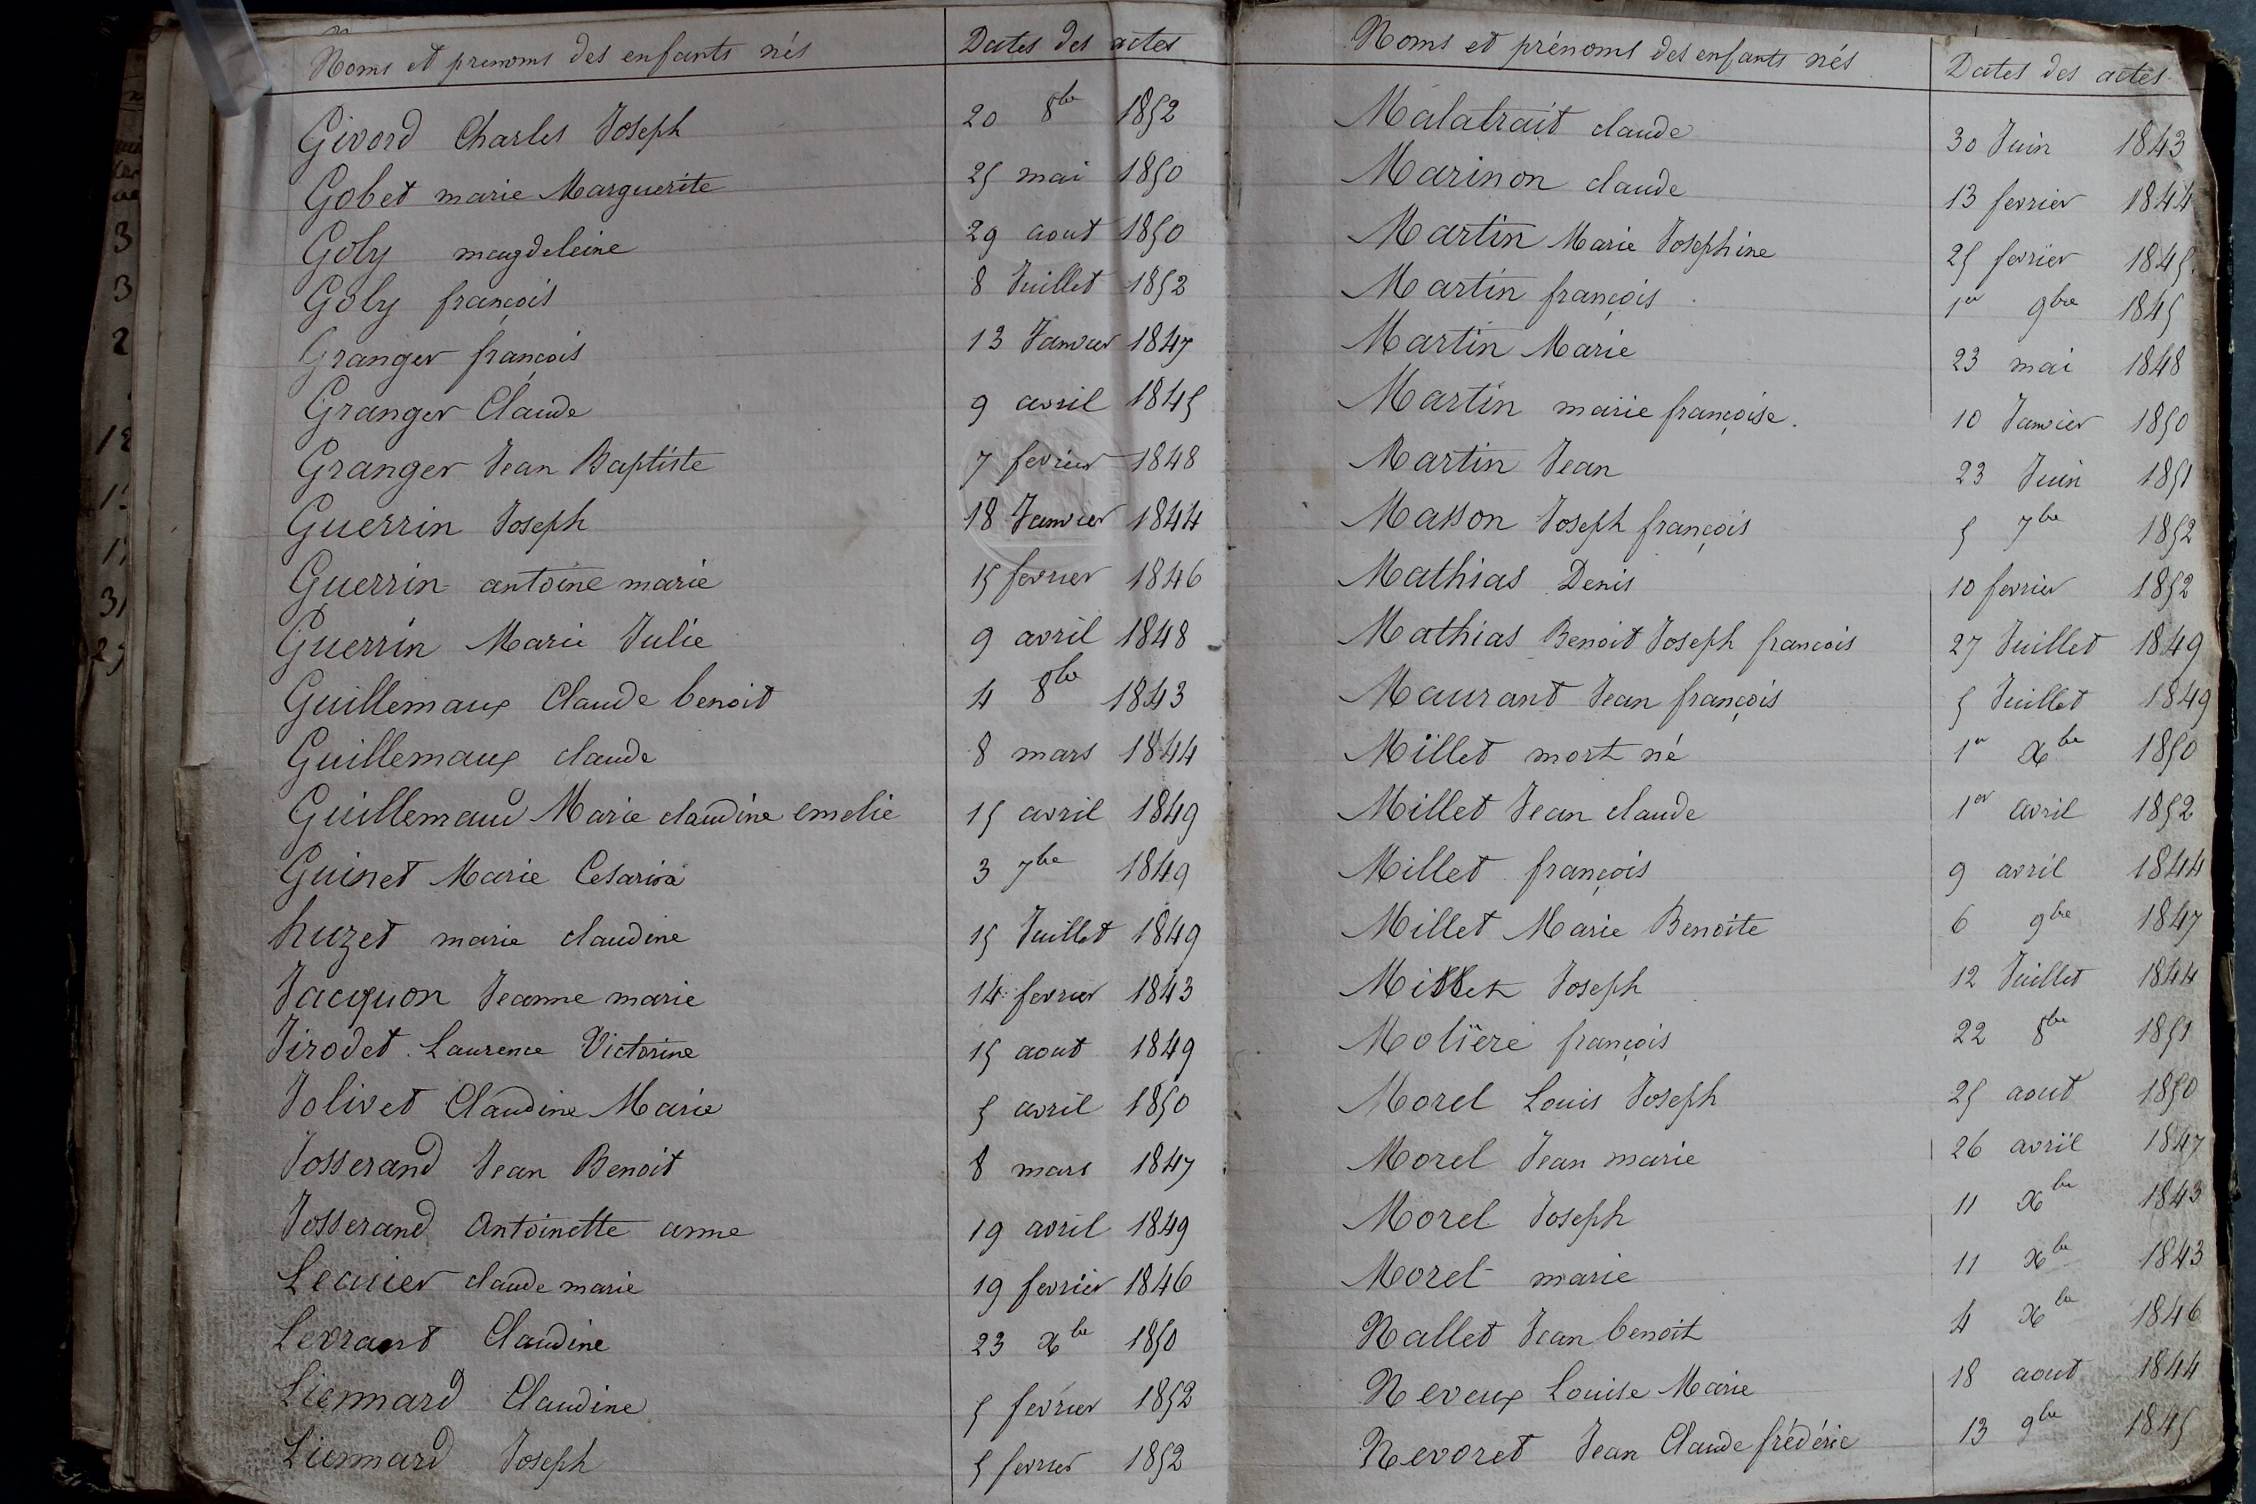 Noms et prenoms des enfants nés Dates des actes
Givord Charles Joseph 20 8bre 1852
Gobet marie Marguerite 25 mai 1850
Goly magdeleine 29 aout 1850
Goly françois 8 Juillet 1852
Granger françois 13 Janvier 1847
Granger Claude 9 avril 1845
Granger Jean Baptiste 7 fevrier 1848
Guerrin Joseph 18 Janvier 1844
Guerrin antoine marie 15 fevrier 1846
Guerrin Marie Julie 9 avril 1848
Guillemaux Claude benoit 4 8bre 1843
Guillemaux claude 8 mars 1844
Guillemaud Marie claudine emelie 15 avril 1849
Guinet Marie 3 7bre 1849
huzet marie claudine 15 Juillet 1849
Jacquon Jeanne marie 14 fevrier 1843
Jirodet Laurence Victorine 15 aout 1849
Jolivet Claudine Marie 5 avril 1850
Josserand Jean Benoit 8 mars 1847
Josserand Antoinette anne 19 avril 1849
Lecuier claude marie 19 fevrier 1846
Levrant Claudine 23 Xbre 1850
Lienmard Claudine 5 fevrier 1852
Lienmard Joseph 5 fevrier 1852
Noms et prénoms des enfants nés Dates des actes
Malatrait claude 30 Juin 1843
Marinon claude 13 fevrier 1844
Martin Marie Josephine 25 fevrier 1845
Martin françois 1er 9bre 1845
Martin Marie 23 mai 1848
Martin marie françoise. 10 Janvier 1850
Martin Jean 23 Juin 1851
Masson Joseph françois 5 7bre 1852
Mathias Denis 10 fevrier 1852
Mathias Benoit Joseph francois 27 Juillet 1849
Maurant Jean françois 5 Juillet 1849
Millet mort né 1er Xbre 1850
Millet Jean claude 1er avril 1852
Millet françois 9 avril 1844
Millet Marie Benoite 6 9bre 1847
Millet Joseph 12 Juillet 1844
Molière françois 22 8bre 1851
Morel Louis Joseph 25 aout 1850
Morel Jean marie 26 avril 1847
Morel Joseph 11 Xbre 1843
Morel marie 11 Xbre 1843
Nallet Jean benoit 4 Xbre 1846
Neveux Louise Marie 18 aout 1844
Nevoret Jean Claude frédéric 13 9bre 1845